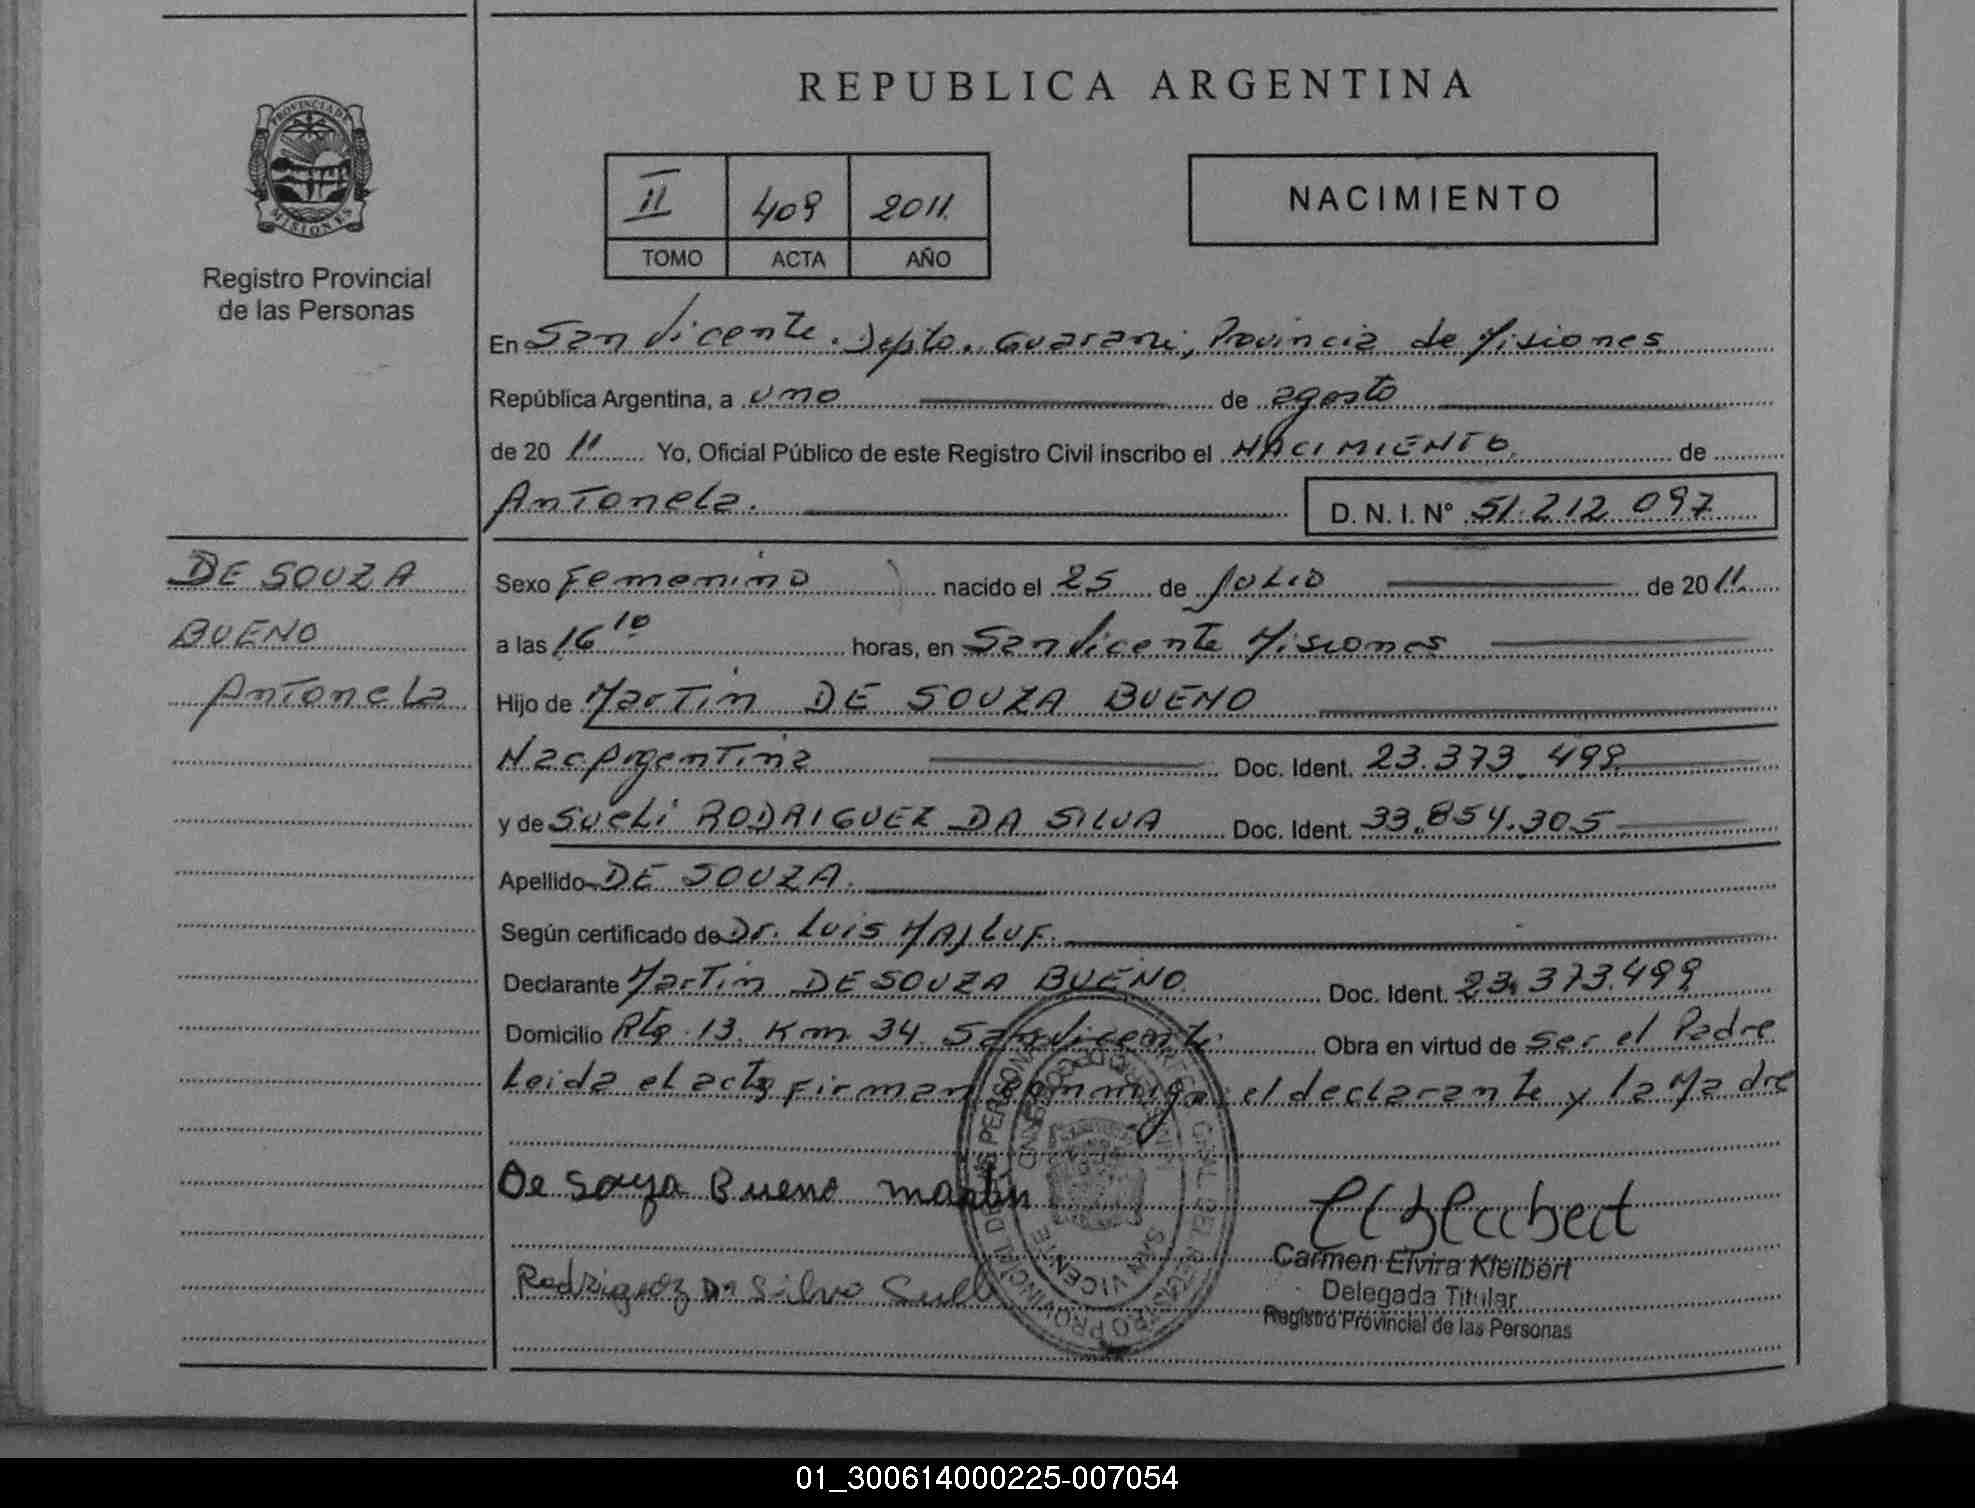 REPUBLICA ARGENTINA
PROVINCIA DE
MISIONES
Registro Provincial
de las Personas
II 409 2011.
TOMO ACTA AÑO
NACIMIENTO
En San Vicente. Depto. Guarani, Provincia de Misiones
República Argentina, a uno de agosto
de 20 11 Yo, Oficial Público de este Registro Civil inscribo el NACIMIENTO. de
Antonela. D. N. I. N° 51.212 097
DE SOUZA
BUENO
Antonela
Sexo Femenino nacido el 25 de Julio de 20 11.
a las 16 10 horas, en San Vicente Misiones
Hijo de Martin DE SOUZA BUENO
Nac Argentina Doc. Ident. 23.373.499
y de Sueli RODRIGUEZ DA SILVA Doc. Ident. 33.854.305
Apellido DE SOUZA.
Según certificado de Dr. Luis MAJLUF.
Declarante Martin DE SOUZA BUENO Doc. Ident. 23.373.499
Domicilio Rta. 13. Km. 34. San Vicente. Obra en virtud de ser el Padre
Leida el acta firman conmigo, el declarante y la Madre
De Souza Bueno Martin
Rodriguez Da Silva Sueli
SAN VICENTE
Carmen Elvira Kleibert
Delegada Titular
Registro Provincial de las Personas
01_300614000225-007054